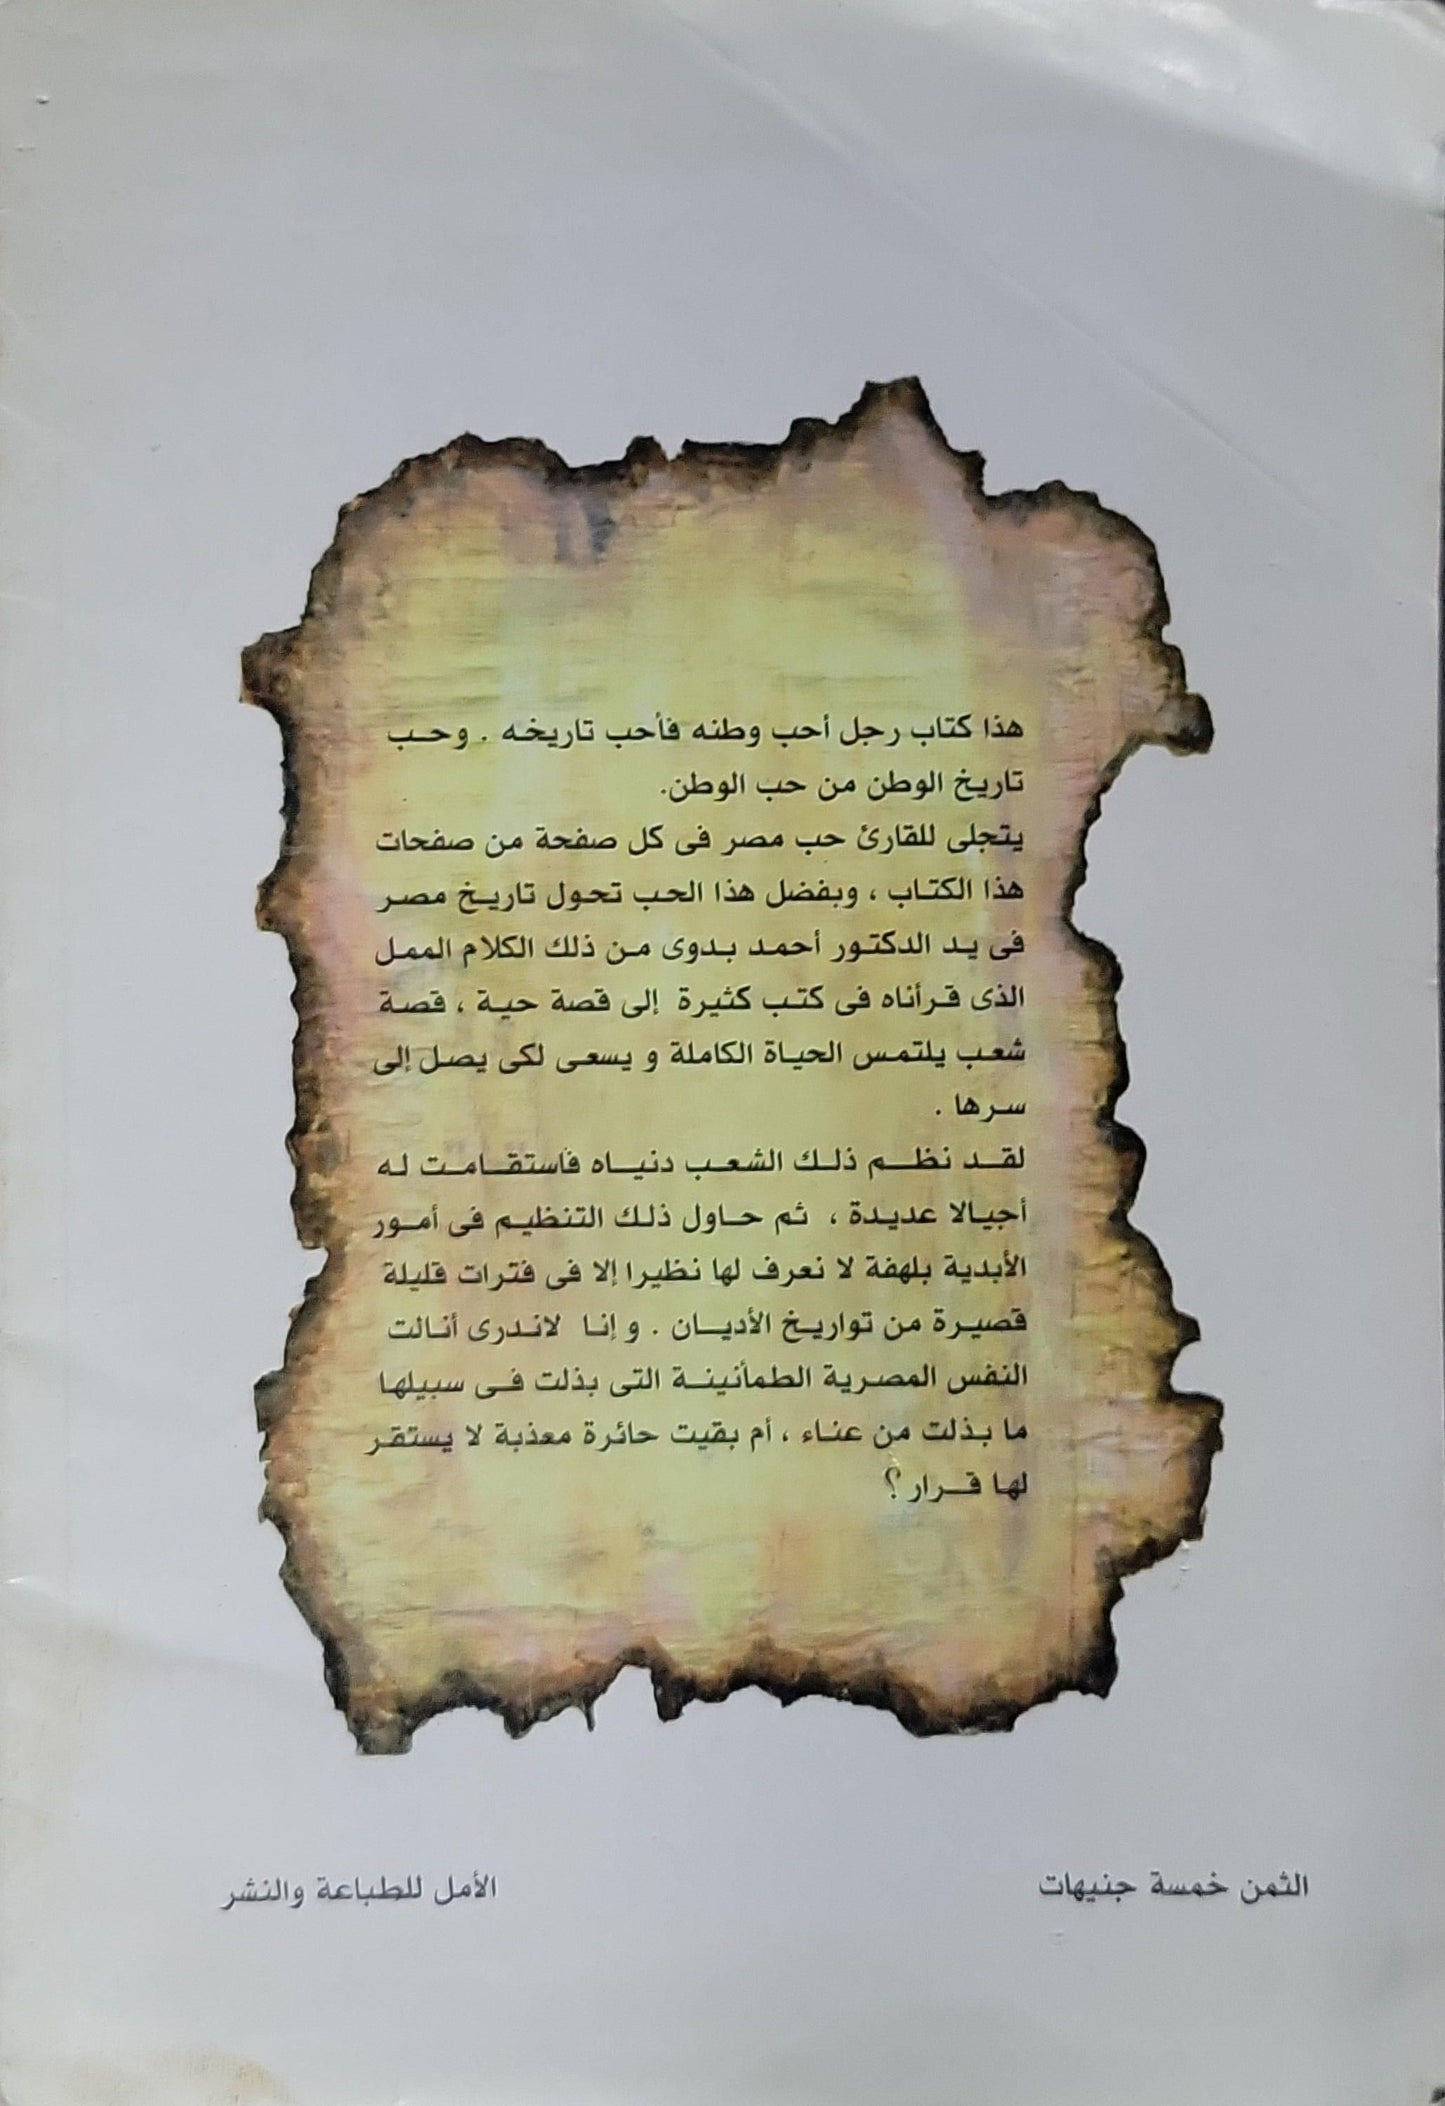 هذا كتاب رجل أحب وطنه فأحب تاريخه . وحب
تاريخ الوطن من حب الوطن.
يتجلى للقارئ حب مصر فى كل صفحة من صفحات
هذا الكتاب ، وبفضل هذا الحب تحول تاريخ مصر
فى يد الدكتور أحمد بدوى من ذلك الكلام الممل
الذى قرأناه فى كتب كثيرة إلى قصة حية ، قصة
شعب يلتمس الحياة الكاملة و يسعى لكى يصل إلى
سرها .
لقد نظم ذلك الشعب دنياه فاستقامت له
أجيالا عديدة ، ثم حاول ذلك التنظيم فى أمور
الأبدية بلهفة لا نعرف لها نظيرا إلا فى فترات قليلة
قصيرة من تواريخ الأديان . و إنا لاندرى أنالت
النفس المصرية الطمأنينة التى بذلت فى سبيلها
ما بذلت من عناء ، أم بقيت حائرة معذبة لا يستقر
لها قرار ؟
الثمن خمسة جنيهات
الأمل للطباعة والنشر